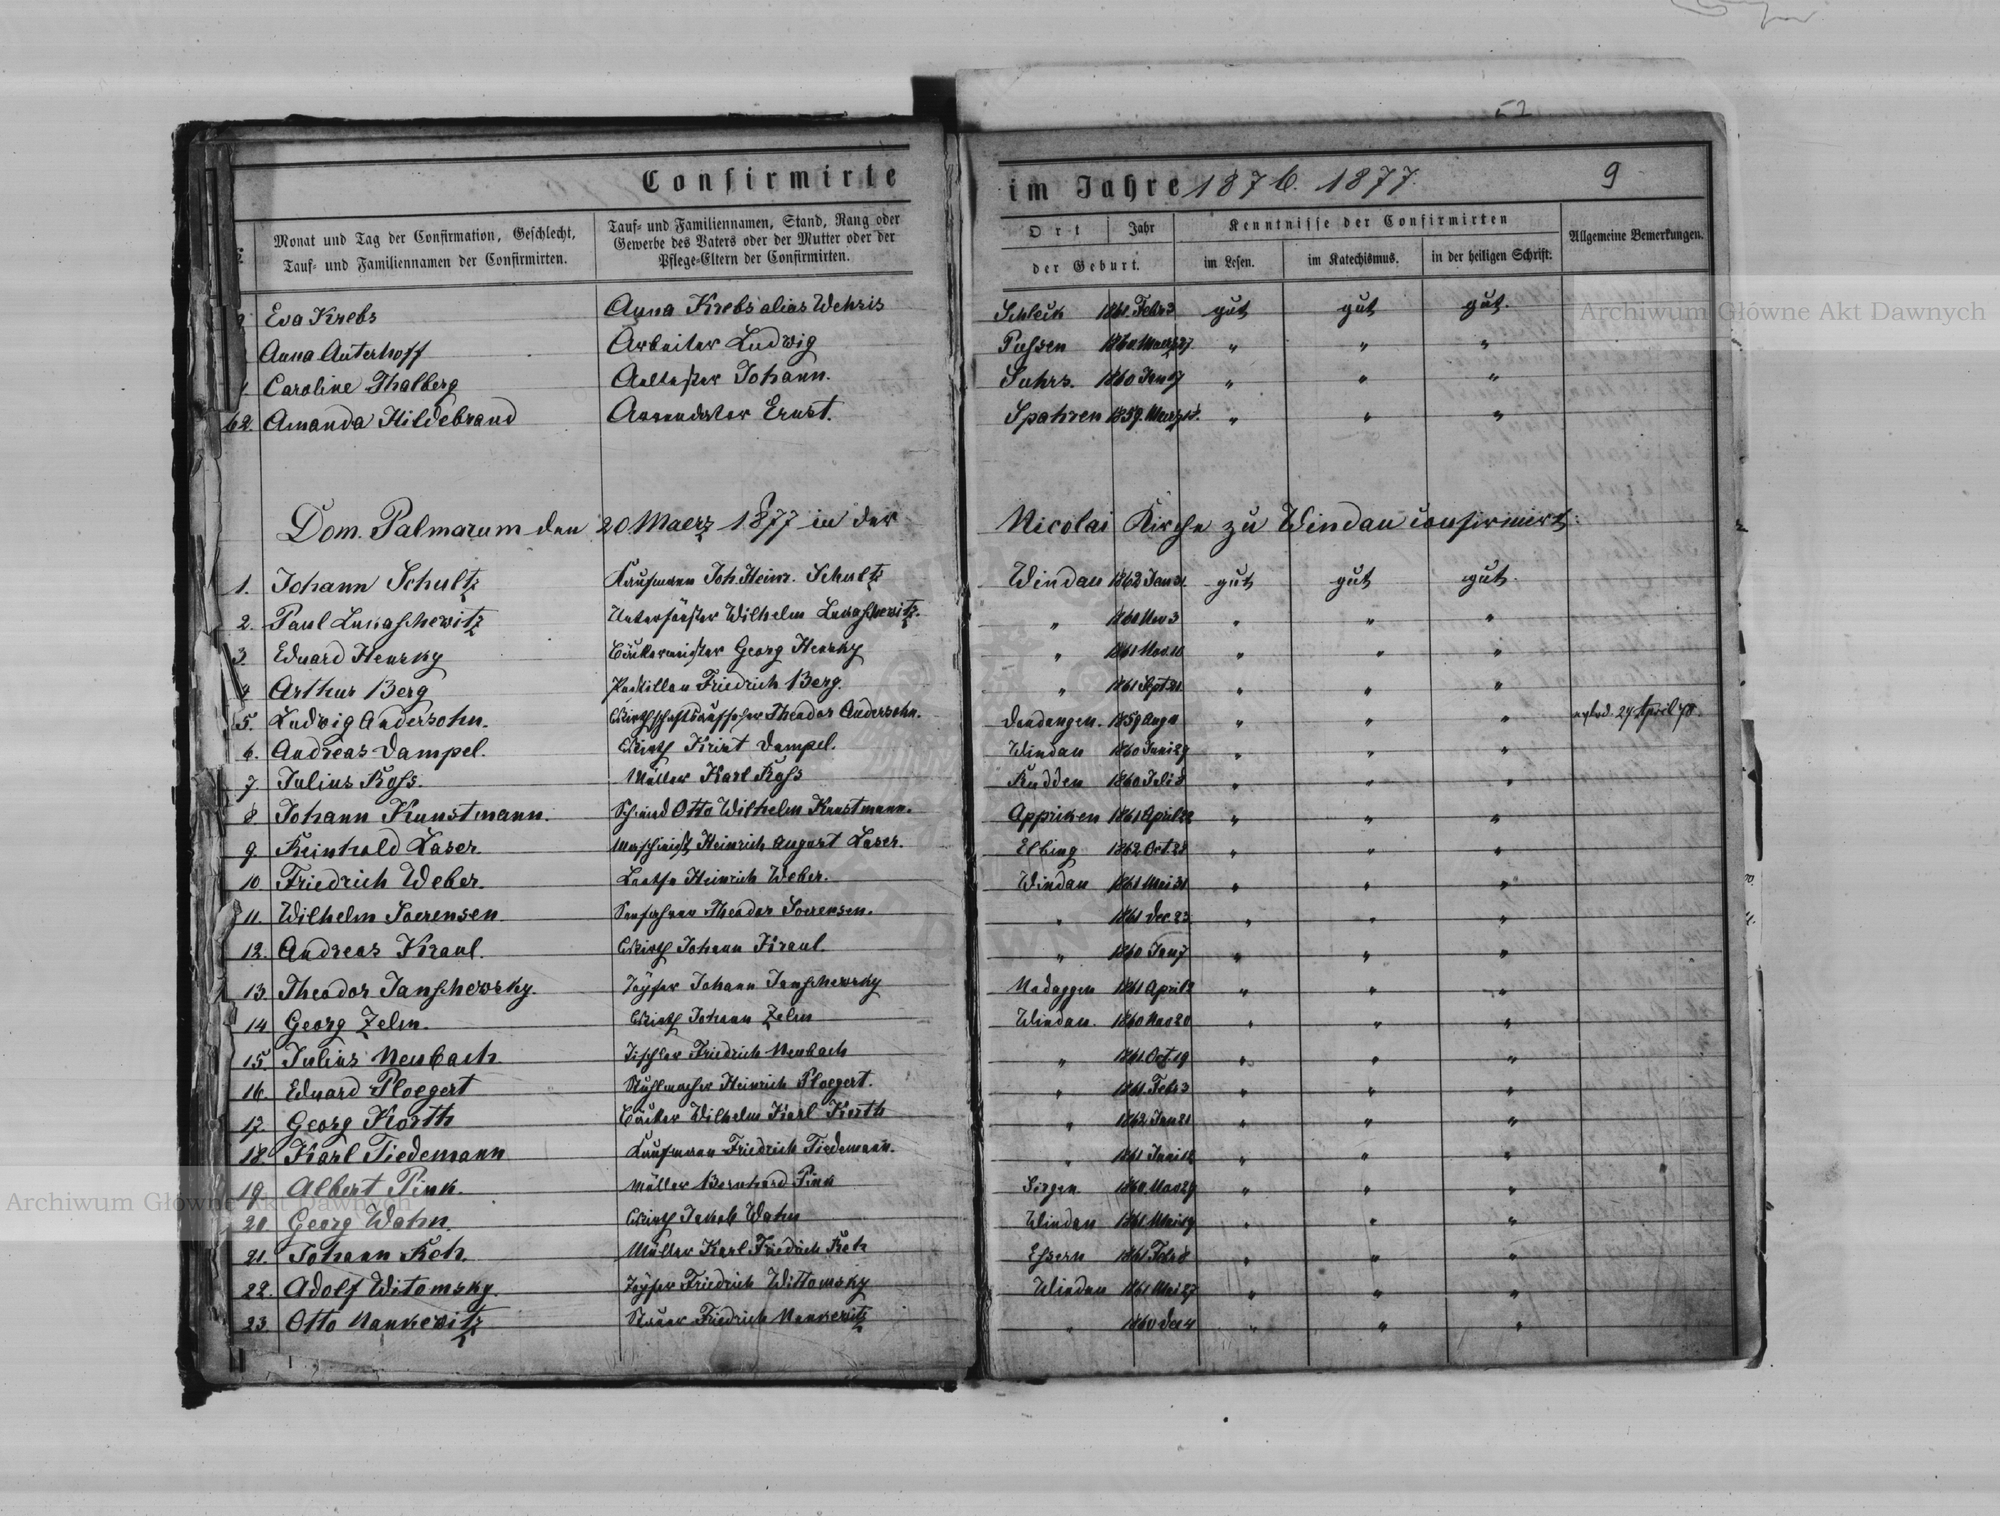 52
Confirmirte im Jahre 1876. 1877. 9
Monat und Tag der Confirmation, Geschlecht, Tauf- und Familiennamen der Confirmirten.
Tauf- und Familiennamen, Stand, Rang oder Gewerbe des Vaters oder der Mutter oder der Pflege-Eltern der Confirmirten.
Ort Jahr der Geburt.
Kenntnisse der Confirmirten
im Lesen. im Katechismus. in der heiligen Schrift.
Allgemeine Bemerkungen.
Eva Krebs Anna Krebs alias Wehris Schleck 1861. Febr 3 gut gut gut.
Anna Auterhoff Arbeiter Ludwig Pussen 1860. Maerz 27 " " "
Caroline Thalberg Aeltester Johann. Suhrs. 1860 Jan 17 " " "
62. Amanda Hildebrand Ernst. Spahren 1859. Maerz " " "
Dom. Palmarum den 20 Maerz 1877 in der Nicolai Kirche zu Windau confirmirt:
1. Johann Schultz Kaufmann Joh. Heinr. Schultz Windau 1862 Jan 31 gut gut gut.
2. Paul Lukaschewitz Unterförster Wilhelm Lukaschewitz. " 1860 Nov 3 " " "
3. Eduard Hensky Bäckermeister Georg Hensky " 1861 Nov. 10 " " "
4 Arthur Berg Postillon Friedrich Berg. " 1861 Sept. 21 " " "
5. Ludwig Andersohn. Wirthschaftsaufseher Theodor Andersohn. Dondangen. 1859 Aug " " " 24 April 78.
6. Andreas Dampel. Wirth Krist Dampel. Windau 1860 Juni 29 " " "
7. Julius Ross. Müller Karl Ross Rudden 1860 Juli 8 " " "
8. Johann Kunstmann. Schmied Otto Wilhelm Kunstmann. Appriken 1861 April 22 " " "
9. Reinhold Laser. Maschinist Heinrich August Laser. Elbing 1862 Oct 28 " " "
10 Friedrich Weber. Lootse Heinrich Weber. Windau 1861 Mai 31 " " "
11. Wilhelm Soerensen Theodor Soerensen. " 1861 Dec. 23 " " "
12. Andreas Kraul. Wirth Johann Kraul. " 1860 Jan 7 " " "
13. Theodor Janschewsky. Töpfer Johann Janschewsky Nodaggen 1861 April 2 " " "
14 Georg Zelm. Wirth Johann Zelm Windau. 1860 Nov 20 " " "
15. Julius Neubach Tischler Friedrich Neubach " 1861. Oct. 19 " " "
16. Eduard Ploegert Stuhlmacher Heinrich Ploegert. " 1861 Febr 3 " " "
17. Georg Korth Böttcher Wilhelm Karl Korth " 1862 Jan 21 " " "
18. Karl Tiedemann Kaufmann Friedrich Tiedemann. " 1861 Juni 12 " " "
19. Albert Pink. Müller Bernhard Pink Sirgen 1860. Nov 29 " " "
20. Georg Wahn. Wirth Jakob Wahn Windau 1861 Mai 19 " " "
21. Johann Roh. Müller Karl Friedrich Roh Essern 1861 Febr 8 " " "
22. Adolf Witomsky. Töpfer Friedrich Wittomsky Windau 1861 Mai 27 " " "
23. Otto Mankewitz Friedrich Mankewitz " 1860 Dec 4 " " "
Archiwum Główne Akt Dawnych
Archiwum Główne Akt Dawnych